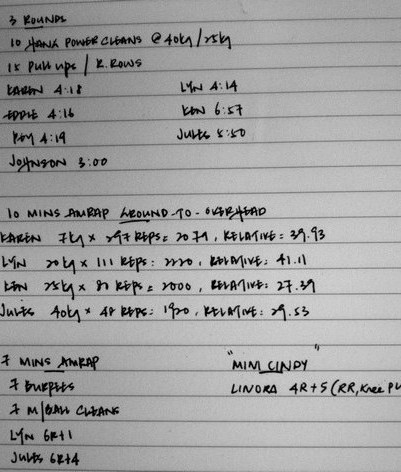 3 ROUNDS
10 HANG POWER CLEANS @ 40kg / 25kg
15 PULL UPS / R. ROWS
KAREN 4:18 LYN 4:14
EDDIE 4:16 KEN 6:57
4:19 JULES 5:50
JOHNSON 3:00
10 MINS AMRAP GROUND-TO-OVERHEAD
KAREN 7kg x 297 REPS = 2079, RELATIVE = 39.93
LYN 20kg x 111 REPS: 2220, RELATIVE: 41.11
KEN 25kg x 80 REPS = 2000, RELATIVE: 27.39
JULES 40kg x 48 REPS: 1920, RELATIVE: 29.53
7 MINS AMRAP "MINI CINDY"
7 BURPEES LINORA 4R+5 (RR, Knee PU
7 M/BALL CLEANS
LYN 6R+1
JULES 6R+4